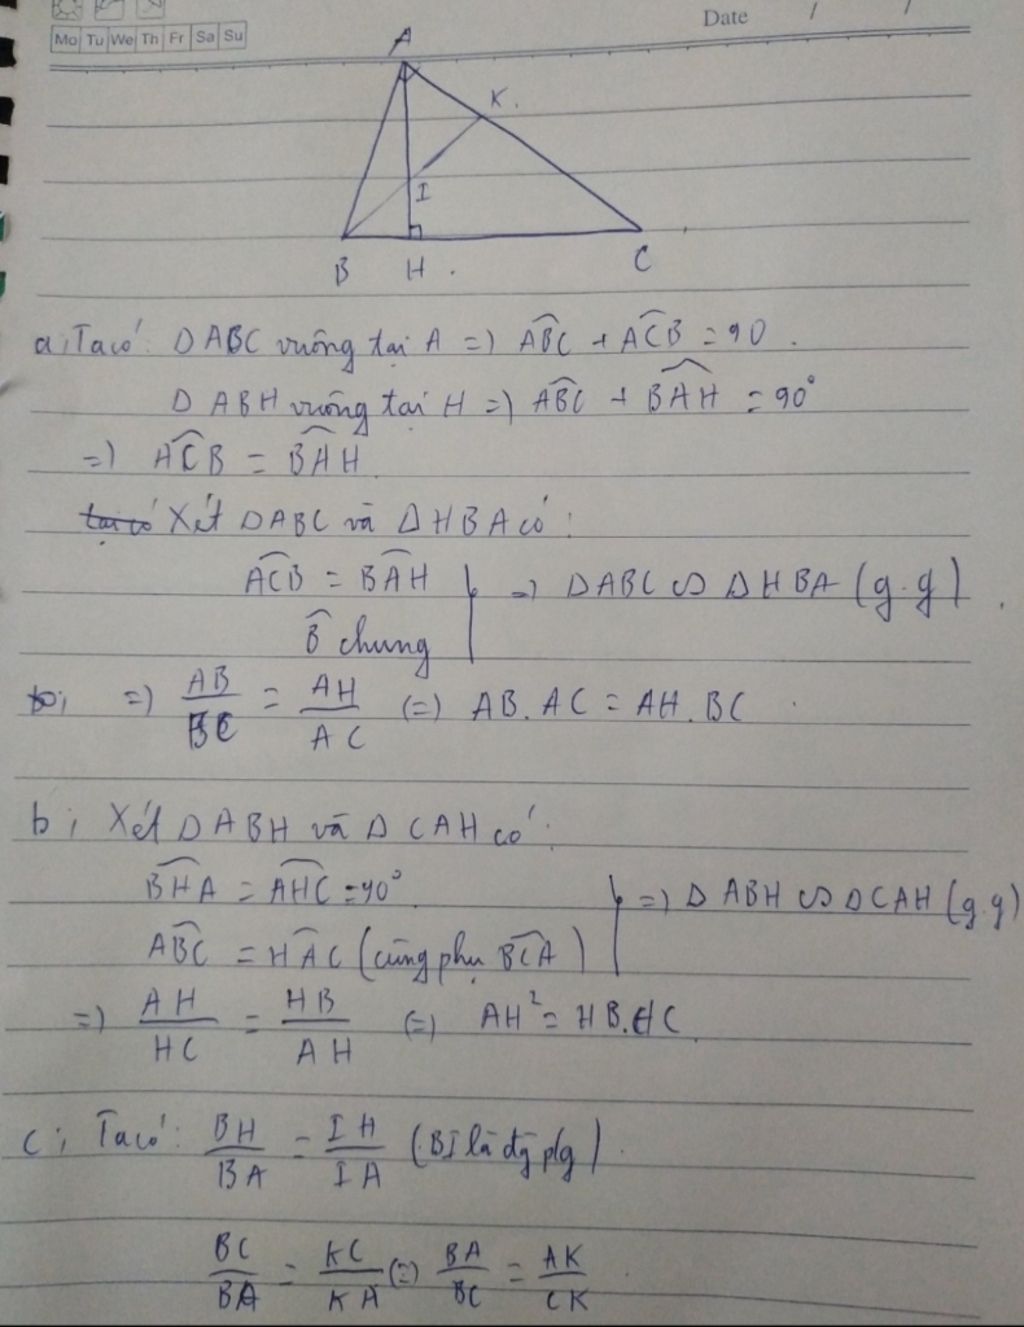 Date / /
Mo Tu We Th Fr Sa Su
A
K.
I
B H . C
a, Ta có: Δ ABC vuông tại A => ABC + ACB = 90.
Δ ABH vuông tại H => ABC + BAH = 90°
=> ACB = BAH
Xét Δ ABC và Δ HBA có:
ACB = BAH
B chung
=> Δ ABC ∽ Δ HBA (g.g).
b, => AB/BC = AH/AC (=) AB.AC = AH.BC
b, Xét Δ ABH và Δ CAH có:
BHA = AHC = 90°
ABC = HAC (cùng phụ BCA)
=> Δ ABH ∽ Δ CAH (g.g)
=> AH/HC = HB/AH (=) AH² = HB.HC
c, Ta có: BH/BA = IH/IA (BI là đg p/g).
BC/BA = KC/KA (=) BA/BC = AK/CK